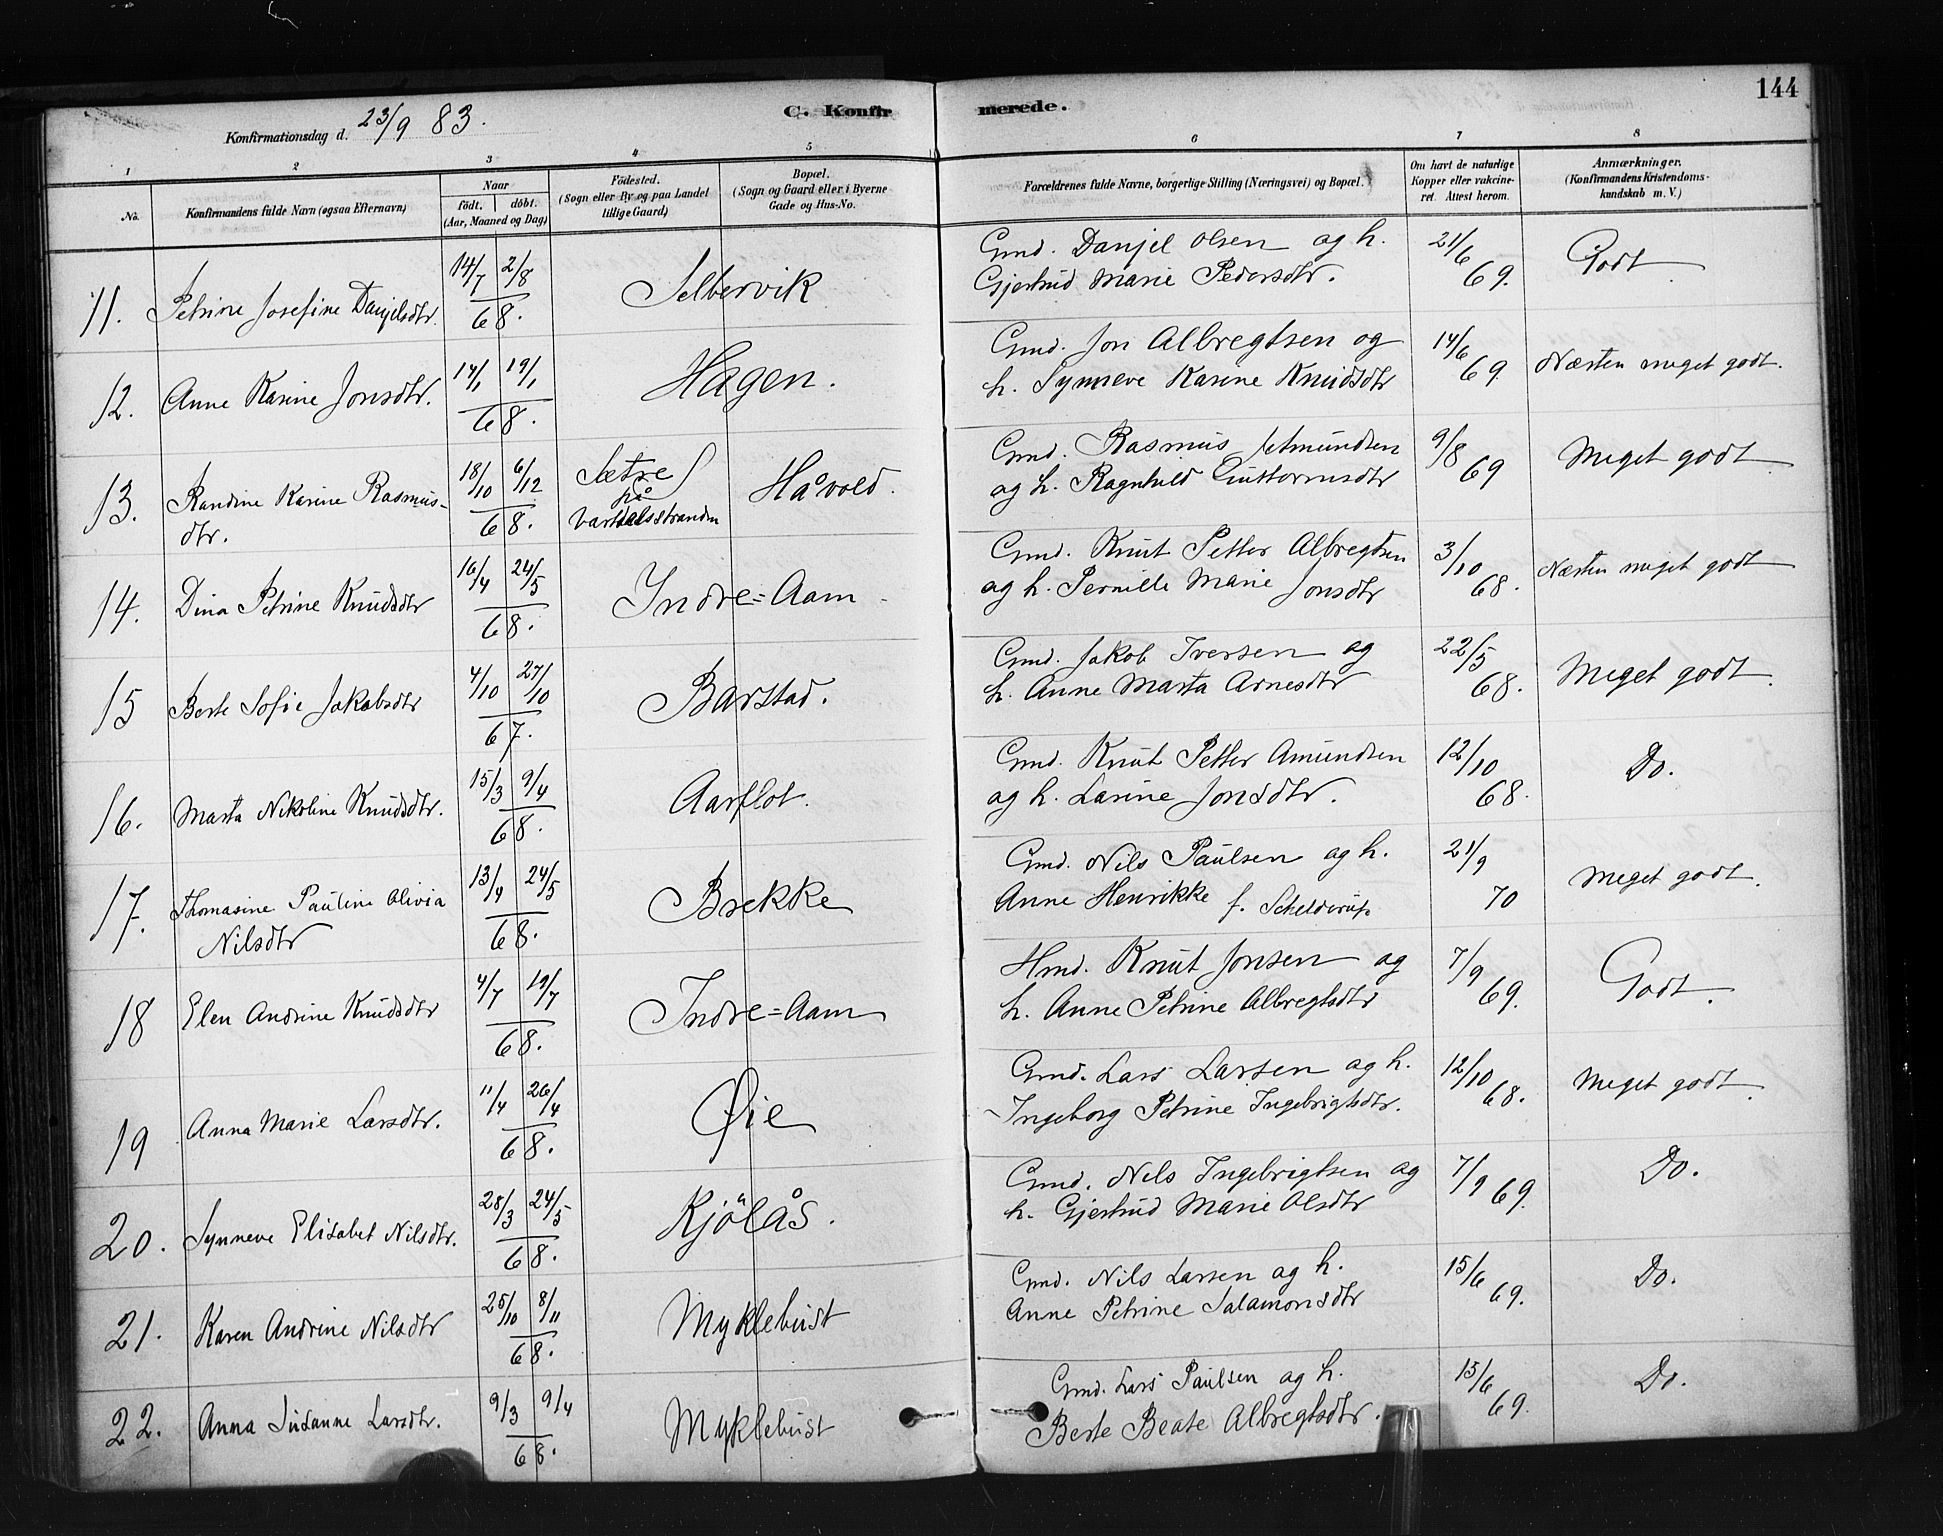 144
C. Konfirmerede.
Konfirmationsdag d. 23/9 83.
1 2 3 4 5 6 7 8
No. Konfirmandens fulde Navn (ogsaa Efternavn) Naar født. døbt. (Aar, Maaned og Dag) Födested. (Sogn eller By og paa Landet tillige Gaard) Bopæl. (Sogn og Gaard eller i Byerne Gade og Hus-No. Forældrenes fulde Navne, borgerlige Stilling (Næringsvei) og Bopæl. Om havt de naturlige Kopper eller vakcineret. Attest herom. Anmærkninger. (Konfirmandens Kristendomskundskab m. V.)
11. Petrine Josefine Danjelsdtr. 14/7 2/8 68. Selbervik Gmd. Danjel Olsen og h. Gjertrud Marie Pedersdtr. 21/6 69. Godt
12. Anne Karine Jonsdtr. 14/1 19/1 68. Hagen. Gmd. Jon Albregtsen og h. Synneve Karine Knudsdtr 14/6 69. Næsten meget godt.
13. Randine Karine Rasmusdtr. 18/10 6/12 68. Sætre på Vartdalsstranden Håvold. Gmd. Rasmus Asmundsen og h. Ragnhild Guttormsdtr 9/8 69 Meget godt
14. Dina Petrine Knudsdtr 16/4 24/5 68. Indre=Aam Gmd. Knut Petter Albregtsen og h. Pernille Marie Jonsdtr 3/10 68. Næsten meget godt
15 Berte Sofie Jakobsdtr 4/10 27/10 67. Barstad. Gmd. Jakob Iversen og h. Anne Marta Arnesdtr 22/5 68. Meget godt.
16. Marta Nikoline Knudsdtr. 15/3 9/4 68. Aarflot. Gmd. Knut Petter Amundsen og h. Larine Jonsdtr. 12/10 68. Do.
17. Thomasine Pauline Olivia Nilsdtr 13/4 24/5 68. Brekke Gmd. Nils Paulsen og h. Anne Henrikke f. Schelderup 21/9 70 Meget godt.
18 Elen Andrine Knudsdtr 4/7 19/7 68. Indre=Aam Hmd. Knut Jonsen og h. Anne Petrine Albregtsdtr 7/9 69. Godt.
19 Anna Marie Larsdtr. 11/4 26/4 68. Øie Gmd. Lars Larsen og h. Ingeborg Petrine Ingebrigtsdtr. 12/10 68. Meget godt.
20. Synneve Elisabet Nilsdtr. 28/3 24/5 68. Kjölås. Gmd. Nils Ingebrigtsen og h. Gjertrud Marie Olsdtr 7/9 69. Do.
21. Karen Andrine Nilsdtr 25/10 8/11 68. Myklebust Gmd. Nils Larsen og h. Anne Petrine Salamonsdtr 15/6 69. Do.
22. Anna Susanne Larsdtr. 9/3 9/4 68. Myklebust Gmd. Lars Paulsen og h. Berte Beate Albregtsdtr. 15/6 69. Do.